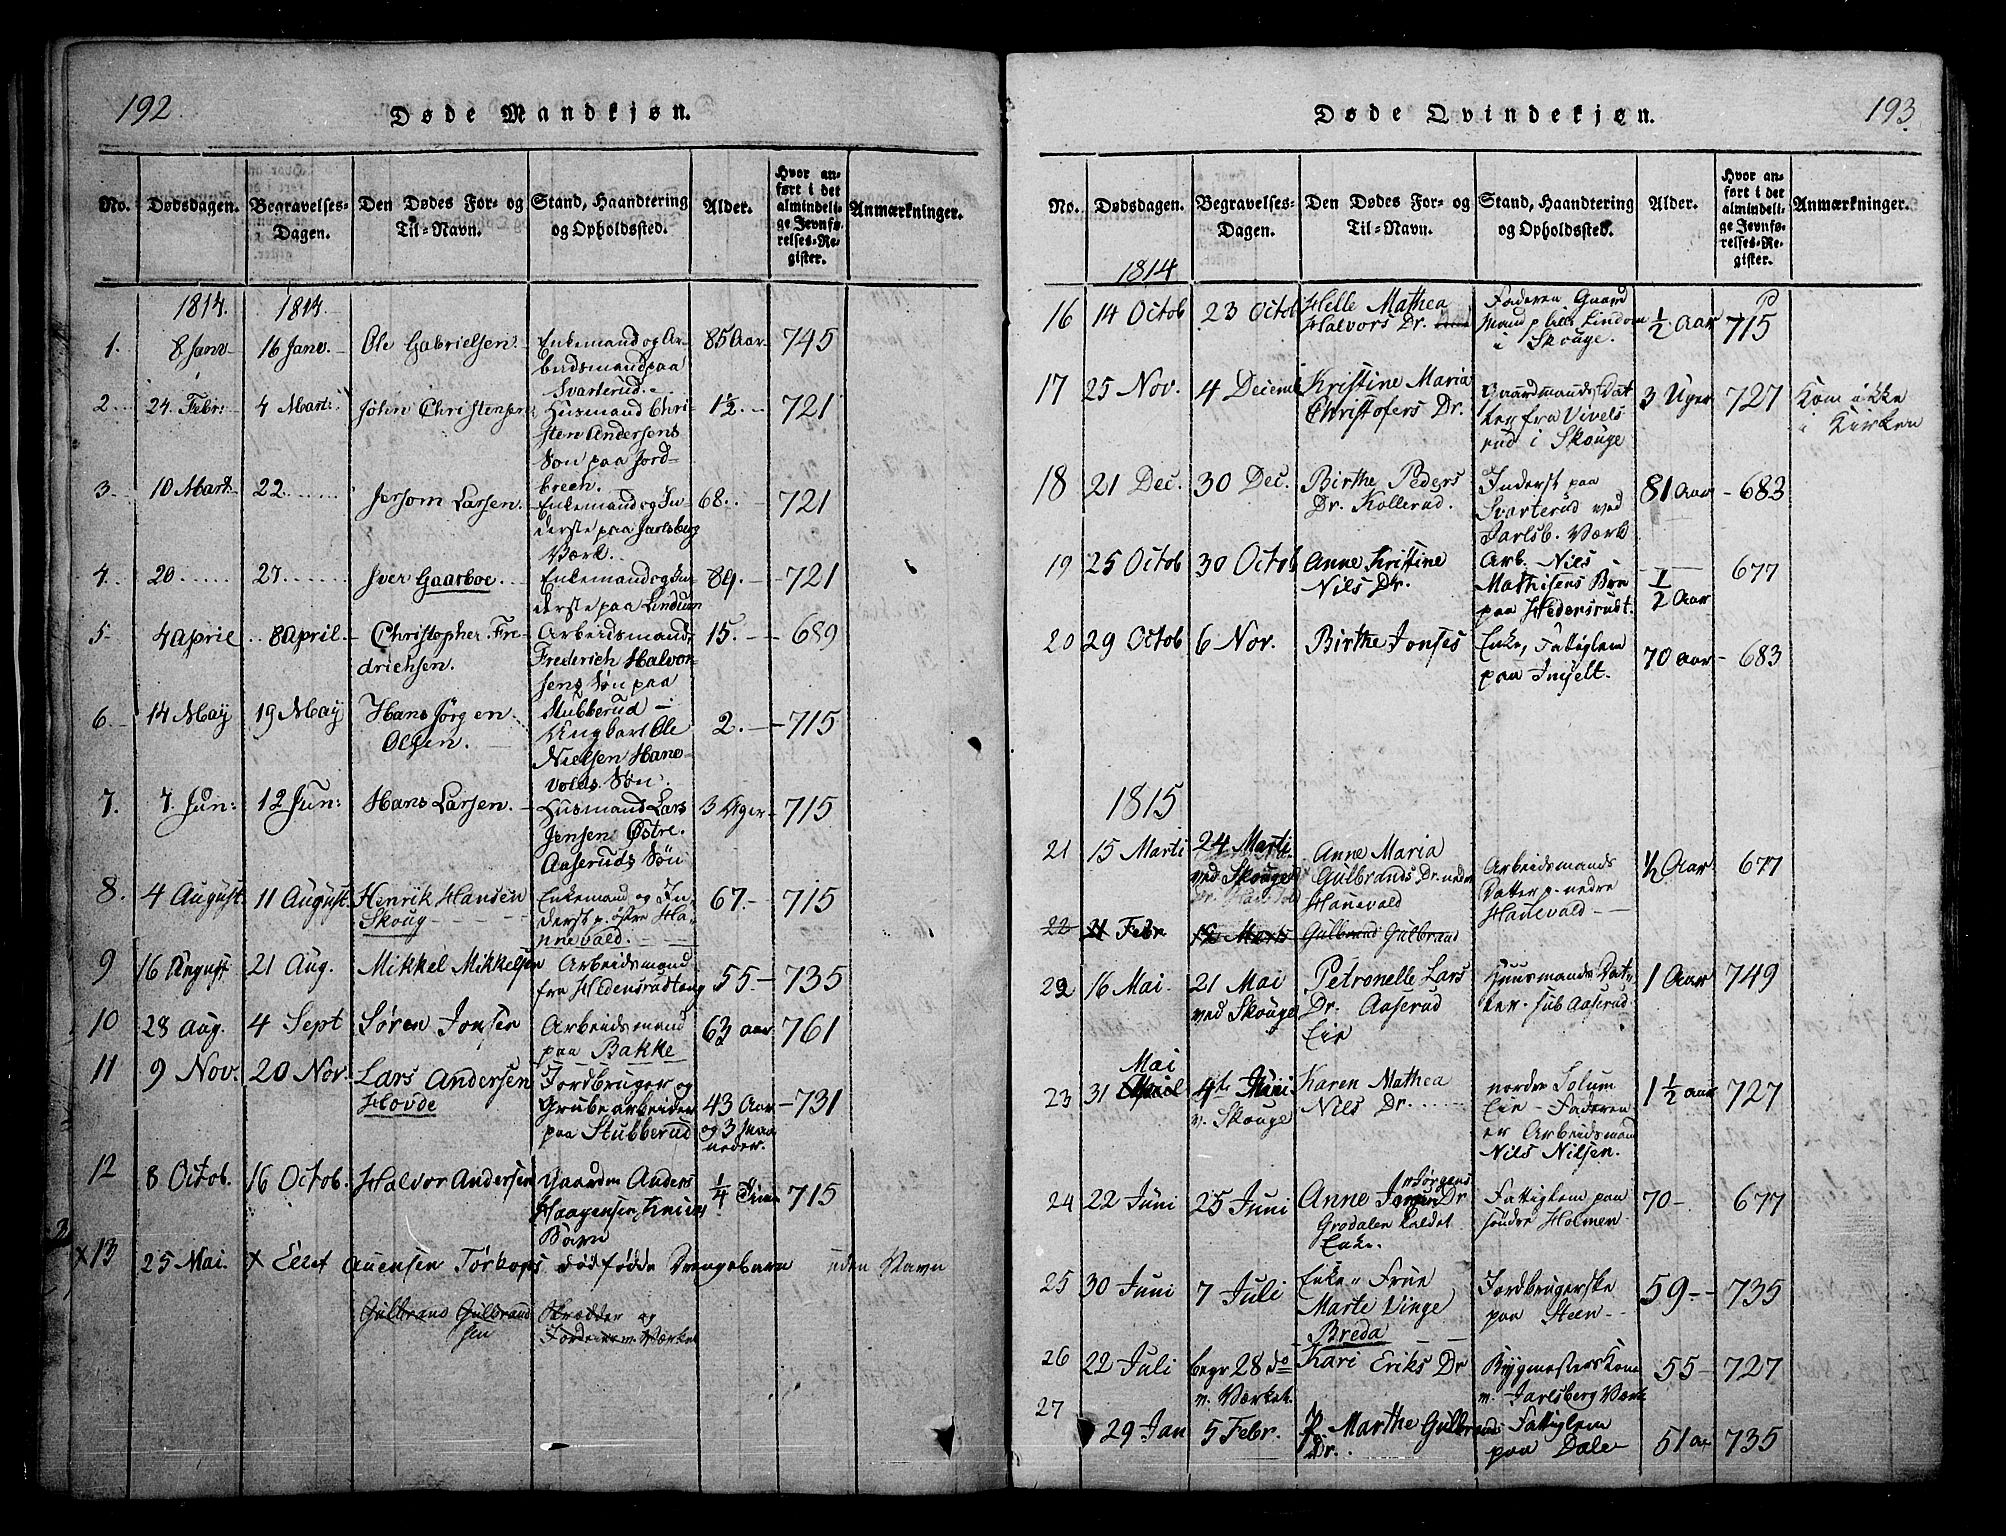 192
Døde Mandkjøn.
No. Dødsdagen. Begravelses-Dagen. Den Dødes For- og Til-Navn. Stand, Haandtering og Opholdssted. Alder. Hvor anført i det almindelige Jevnførelses-Register. Anmærkninger.
1814. 1814.
1. 8 Janv 16 Janv. Ole Gabrielsen. Enkemand og Ar- 85 Aar 745
beidsmand paa
Svarterud.
2. 24 Febr: 4 Mart: John Christensen Husmand Chri- 1½. 721
sten Andersens
Søn paa Jord-
breen.
3. 10 Mart: 22. Larsen. Enkemand og In- 68. 721
derste paa Jarlsberg
Værk.
4. 20 27. Iver Gaarboe Enkemand og In- 89. 721
derste paa Lindum
5 4 April 8 April. Christopher Fre- Arbeidsmand 15. 689
drichsen. Frederich Halvor-
sens Søn paa
Stubberud
6. 14 May 19 May Hans Jørgen Ungkarl Ole 2. 715
Olsen. Nielsen Hane-
volds Søn.
7. 7. Jun: 12 Jun: Hans Larsen. Husmand Lars 3 Uger 715
Jensen Østre
Aaseruds Søn
8. 4 August. 11 August. Henrik Hansen Enkemand og In- 67. 715
Skoug derst p. østre Ha-
nnevald.
9 16 August 21 Aug. Mikkel Mikkelsen Arbeidsmand 55 735
fra Hedensrudtang
10 28 Aug. 4 Sept Søren Jonsen Arbeidsmand 63 aar 761
paa Bakke
11 9 Nov. 20 Nov. Lars Andersen Jordbruger og
Hovde Grubearbeider 43 Aar 731
paa Stubberud og 3 Maa
neder.
12 8 Octob. 16 Octob. Halvor Andersen Gaardm Anders ¼ 715
Haagensen
Barn
x13 25 Mai. x Ellef Auensen Tørkops dødfødde Drengebarn uden Navn
Gulbrand Gulbrand Skrædder og
sen

193
Døde Qvindekjøn.
No. Dødsdagen. Begravelses-Dagen. Den Dødes For- og Til-Navn. Stand, Haandtering og Opholdssted. Alder. Hvor anført i det almindelige Jevnførelses-Register. Anmærkninger.
1814
16 14 Octob 23 Octob Helle Mathea Faderen Gaard ½ Aar 715
Halvors Dr. Mand p Lille Lindom
i Skouge.
17 25 Nov. 4 Decemb Kristine Maria Gaardmands Dat 3 Uger 727 Kom ikke
Christofers Dr. ter fra Vivels i Kirken
rud i Skouge
18 21 Dec. 30 Dec. Birthe Peders Inderst paa 81 aar 683
Dr. Kollerud. Svarterud ved
Jarlsb. Værk
19 25 Octob 30 Octob Anne Kristine Arb. Nils 677
Nils Dr. Mathisens Brn ½ Aar
paa Hedensrudt.
20 29 Octob 6 Nov. Birthe Jonses Enke, Fattiglem 70 aar 683
paa Imjelt.
1815
21 15 Marti 24 Marti Anne Maria Arbeidsmands ½ Aar 677
ved Skouge Gulbrands Dr. nedre Datter p. nedre
Hanevald Hanevald
22 11 Febr 12 Marts Gulbrand Gulbrand
22 16 Mai. 21 Mai Petronelle Lars Huusmands Dat 1 Aar 749
ved Skouge Dr. Aaserud ter. sub Aaserud
Eie
Mai
23 31 April 4de Juni Karen Mathea nordre Solum 1½ aar 727
v. Skouge Nils Dr. Eie Faderen
er Arbeidsmand
Nils Nilsen.
24 22 Juni 25 Juni Anne Jørgens Dr Fattiglem paa 70 677
Grodalen kaldet søndre Holmen
Enke.
25 30 Juni 7 Juli Enke Frue Jordbrugerske 59 735
Marte Vinge paa Steen
Breda
26 22 Juli begr 28 do Kari Eriks Dr Bygmesters Kone 55 727
v. Værket. v. Jarlsberg Værk
27 29 Jan 5 Febr. Marthe Gulbrands Fattiglem 51 aar 735
Dr. paa Dale